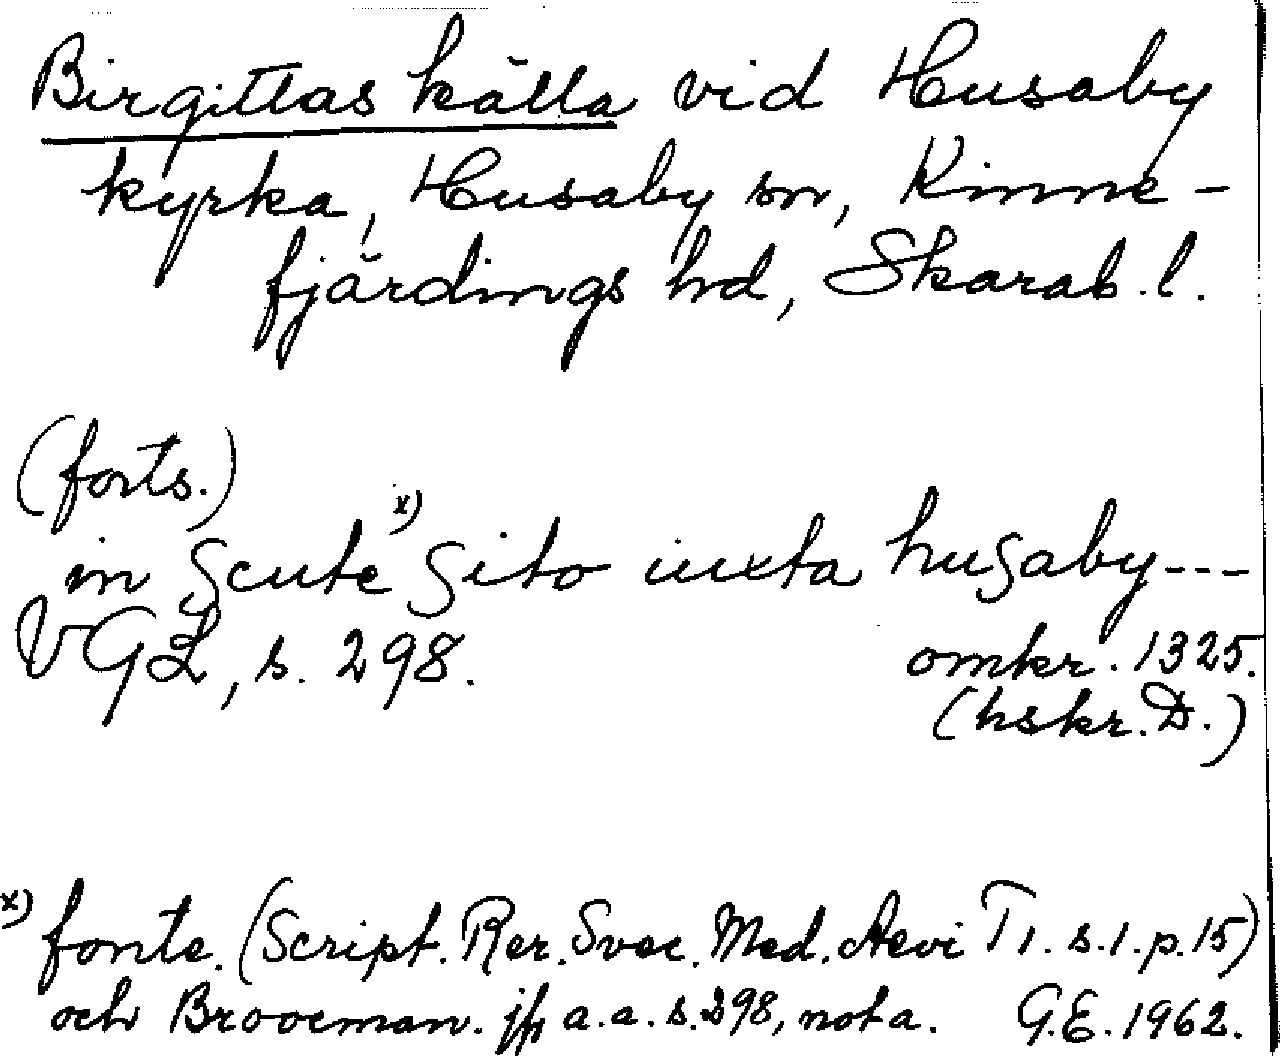 Birgittas källa vid Husaby
kyrka, Husaby sn, Kinne-
fjärdings hd, Skarab. l.
(forts.)
in scute x) sito iuxta husaby---
VGL, s. 298. omkr. 1325.
(hskr. D.)
x) fonte. (Script. Rer. Svec. Med. Aevi T 1. s. 1. p. 15)
och Broocman. jfr a. a. s. 298, nota. G.E. 1962.